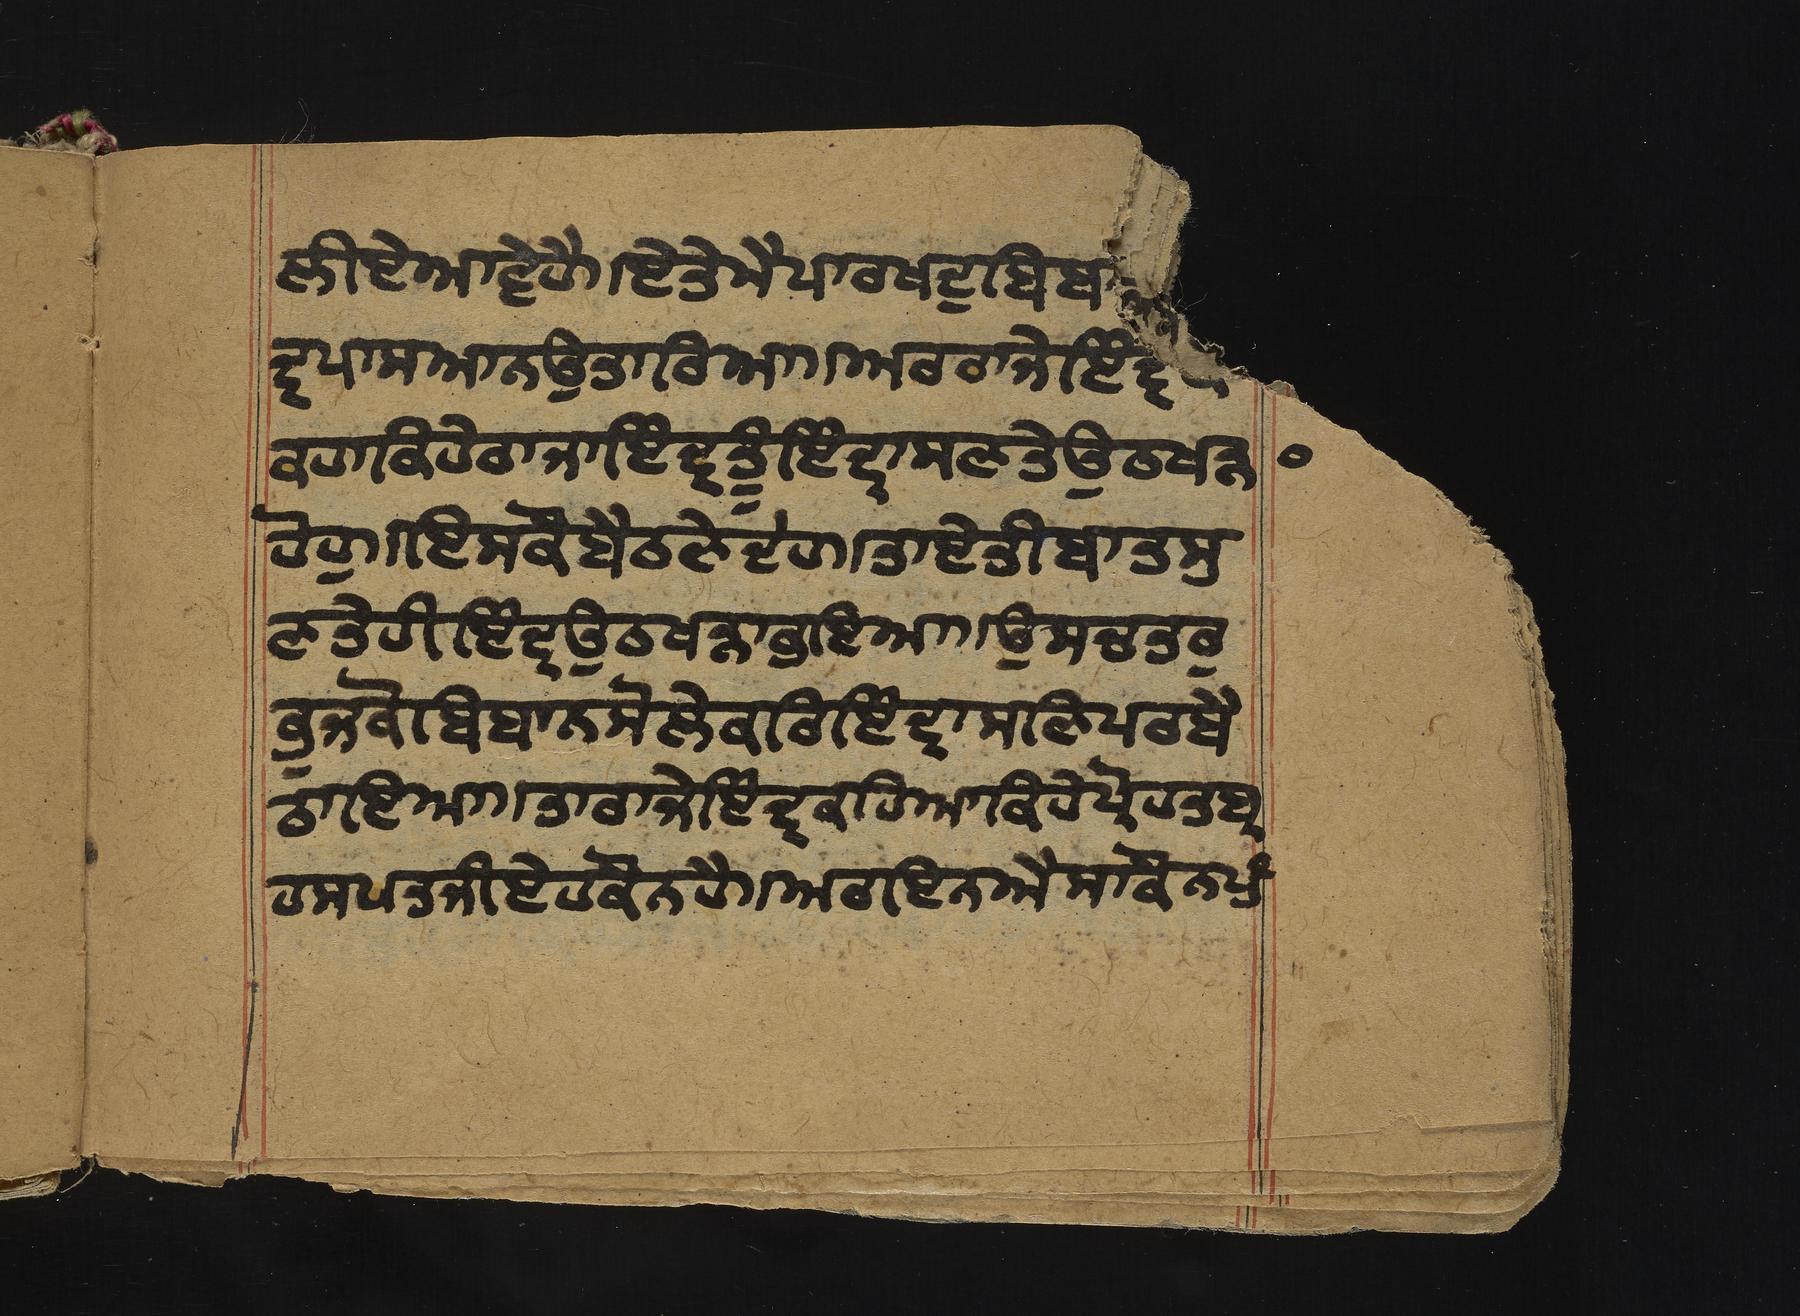 ਲੀਏਆਵੇਹੈ।ਏਤੇਮੈਪਾਰਖਦੁਬਿਬਾ
ਦ੍ਰਪਾਸਆਨਉਤਾਰਿਆ।ਅਰਰਾਜੇਇੰਦ੍ਰ
ਕਹਾਕਿਹੇਰਾਜਾਇੰਦ੍ਰਤੂੰਇੰਦ੍ਰਾਸਣਤੇਉਠਖੜਾ
ਹੋਹੁ।ਇਸਕੌਬੈਠਣੇਦੇਹ।ਤਾਏਤੀਬਾਤਸੁ
ਣਤੇਹੀਇੰਦ੍ਰਉਠਖੜਾਹੁਇਆ।ਉਸਚਤਰ
ਭੁਜਕੋਬਿਬਾਨਸੋਲੇਕਰਿਇੰਦ੍ਰਾਸਣਿਪਰਬੈ
ਠਾਇਆ।ਤਾਰਾਜੇਇੰਦ੍ਰਕਹਿਆਕਿਹੇਪ੍ਰੋਹਤਬ੍ਰ
ਹਸਪਤਜੀਏਹਕੌਨਹੈ।ਅਰਇਨਐਸਾਕੌਨਪੁੰ